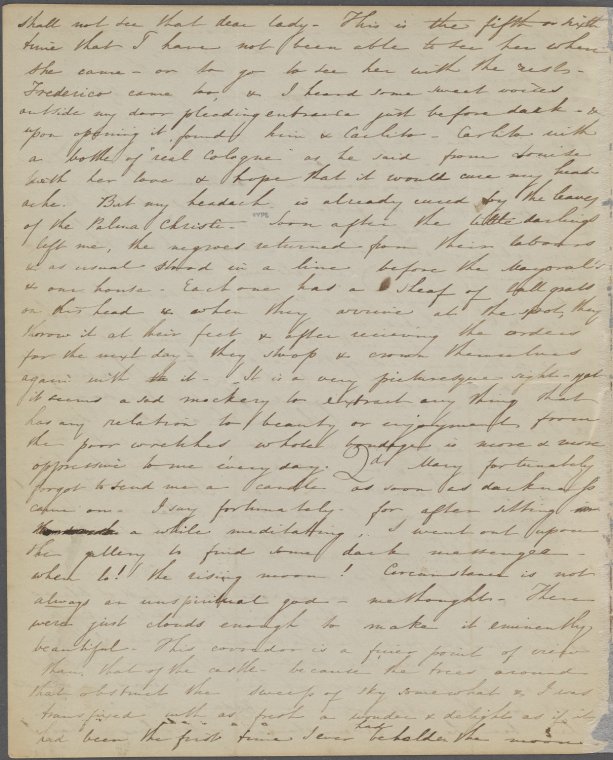 shall not see that dear lady - This is the fifth or sixth
time that I have not been able to see her when
she came - or to go to see her with the rest -
Frederico came too, & I heard some sweet voices
outside my door pleading entrance just before dark - &
upon opening it, found him & Carlito - Carlito with
a bottle of "real Cologne" as he said from Louise
with her love & hope that it would cure my head-
ache. But my headach is already cured by the leaves
of the Palma Christi - Soon after the little darlings
left me, the negroes returned from their labours
& as usual stood in a line before the Mayoral's
& our house - Each one has a sheaf of tall grass
on his head & when they arrive at the spot, they
throw it at their feet & after receiving the orders
for the next day they stoop & crown themselves
again with it - It is a very picturesque sight - yet
it seems a sad mockery to extract any thing that
has any relation to beauty or enjoyment from
the poor wretches whose bondage is more & more
oppressive to me every day. 2d Mary fortunately
forgot to send me a candle as soon as darkness
came on - I say fortunately - for after sitting
a while meditating, I went out upon
the gallery to find some dark messenger -
when lo! the rising moon! Circumstance is not
always an unspiritual god - methought - There
were just clouds enough to make it eminently
beautiful - This corridor is a finer point of view
than that of the castle because the trees around
that obstruct the sweep of sky somewhat & I was
transfixed with as fresh a wonder & delight as if it
had been the first time I ever had beholden the moon